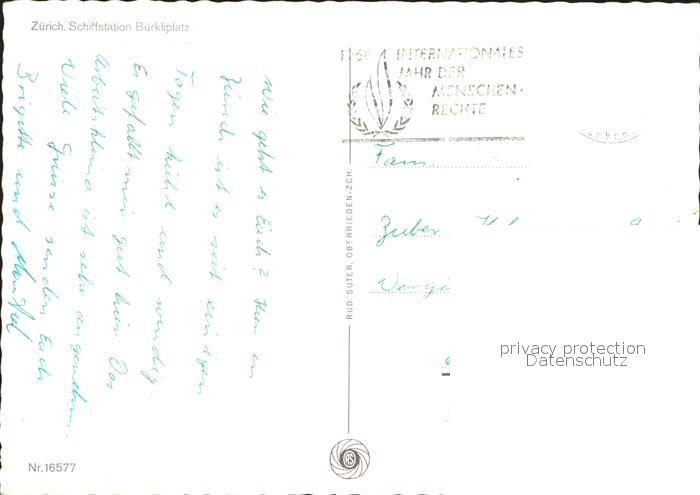 Zürich. Schiffstation Bürkliplatz
Wie geht es Euch? Hier in
Zürich ist es seit einigen
Tagen kühl und windig.
Es gefällt mir gut hier. Das
Arbeitsklima ist sehr angenehm.
Viele Grüsse senden Euch
Brigitte und Manfred
Nr. 16577
RUD. SUTER, OBERRIEDEN-ZCH.
1968 INTERNATIONALES
JAHR DER
MENSCHEN-
RECHTE
Fam.
Zuber
Vergi
privacy protection
Datenschutz